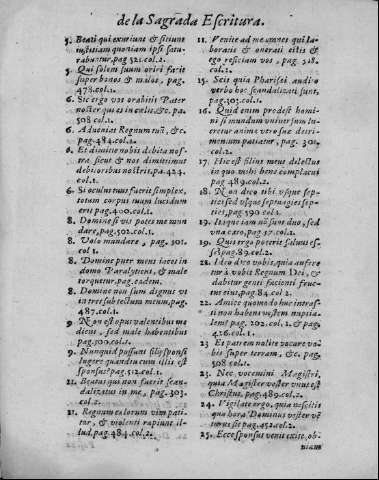 de la Sagrada Escritura.
5. Beati qui exuriunt & sitiunt
iustitiam quoniam ipsi satu-
rabuntur, pag 521. col. 2.
5. Qui solem suum oriri facit
super bonos & malos, pag.
478. col. 1.
6. Sic ergo vos orabitis Pater
noster qui es in cælis, &c. pa.
508 col. 1.
6. Adveniat Regnum tuū, &c.
pag. 484. col. 2.
6. Et dimitte nobis debita nos-
tra sicut & nos dimittimus
debitoribus nostris. pa. 424.
col. 1.
6. Si oculus tuus fuerit simplex,
totum corpus tuum lucidum
erit pag. 400. col. 1.
8. Domine si vis potes me mun
dare, pag. 502. col. 1.
8. Volo mundare, pag. 501.
col 1.
8. Domine puer meus iacet in
domo Paralyticus, & male
torquetur, pag. eadem.
8. Domine non sum dignus vt
intres sub tectum meum, pag.
487. col. 1.
9 Non est opus valentibus me
dicus, sed male habentibus
pag. 500. col. 1.
9. Nunquid possunt filij sponsi
lugere quandiu cum illis est
sponsus? pag. 512. col. 1.
11. Beatus qui non fuerit scan-
dalizatus in me, pag. 303.
col. 2.
11. Regnum cælorum vim pati-
tur, & violenti rapiunt il-
lud, pag. 484. col. 2.
11. Venite ad me omnes qui la-
boratis & onerati estis &
ego reficiam vos, pag. 328.
col. 2.
15. Scis quia Pharisei audi-
verbo hoc scandalizati sunt,
pag. 303. col. 1.
16. Quid enim prodest homi-
ni si mundum universum lu-
cretur animæ vero suæ detri-
mentum patiatur, pag. 301.
col. 2.
17. Hic est filius meus dilectus
in quo mihi bene complacui
pag 489. col. 2.
18. Non dico tibi vsque sep-
ties sed vsque septuagies sep-
ties, pag. 590 col 1.
19. Itaque iam nō sunt duo, sed
vna caro, pag. 37. col. 2.
19. Quis ergo poterit salvus es-
se? pag. 89. col. 2.
21. Ideo dico vobis, quia aufere
tur à vobis Regnum Dei, &
dabitur genti facienti fruc-
tus eius, pag. 84. col. 2.
22. Amice quomodo huc intras-
ti non habens vestem nuptia-
lem? pag. 202. col. 2. & pag.
426. col. 1.
23 Et patrem nolite vocare vo-
bis super terram, &c. pag,
508 col. 1.
23. Nec vocemini Magistri,
quia Magister vester vnus est
Christus, pag. 489. col. 2.
24. Vigilate ergo, quia nescitis
qua hora Dominus vester vē
turus sit pag. 452. col. 2.
25. Ecce sponsus venit exite, ob-
viam